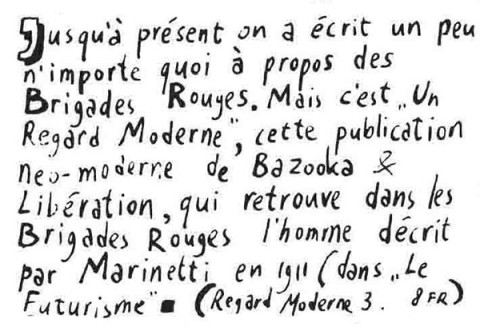 Jusqu'à présent on a écrit un peu
n'importe quoi à propos des
Brigades Rouges. Mais c'est „Un
Regard Moderne", cette publication
neo-moderne de Bazooka &
Libération, qui retrouve dans les
Brigades Rouges l'homme décrit
par Marinetti en 1911 (dans „Le
Futurisme" ■ (Regard Moderne 3. 8 FR)